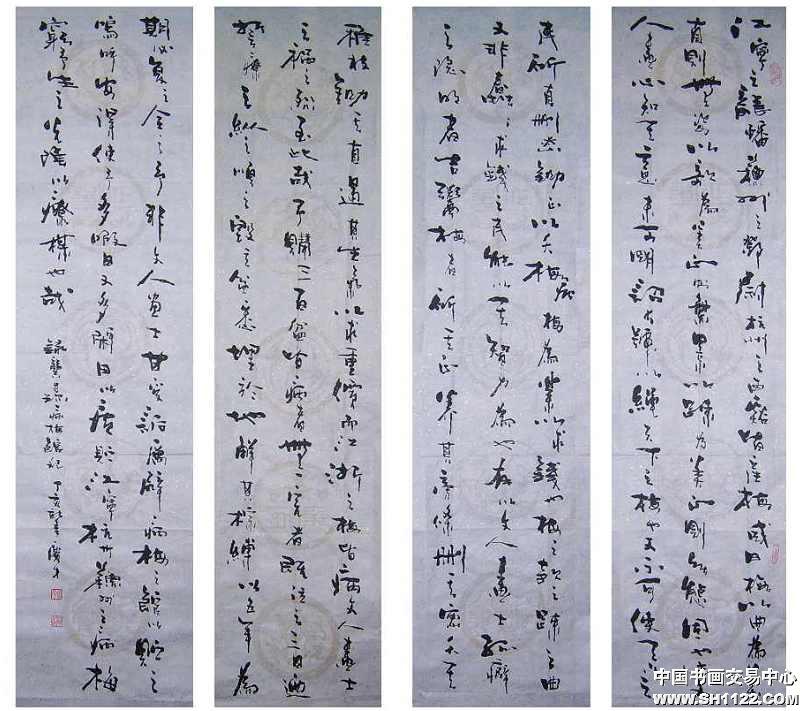 江寧之龍蟠蘇州之鄧尉杭州之西谿皆產梅或曰梅以曲為美
直則無姿以欹為美正則無景以疎為美密則無態固也此文
人畫士心知其意未可明詔大號以繩天下之梅也又不可使天下之
民斫直刪密鋤正以夭梅病梅為業以求錢也梅之欹之疎之曲
又非蠢蠢求錢之民能以其智力為也有以文人畫士孤癖
之隱明告鬻梅者斫其正养其旁條刪其密夭其
稚枝鋤其直遏其生氣以求重價而江浙之梅皆病文人畫士
之禍之烈至此哉予購三百盆皆病者無一完者既泣之三日迺
誓療之縱之順之毀其盆悉埋於地解其棕縛以五年為
期必复之全之予非文人畫士甘受詬厲辟病梅之館以貯之
嗚呼安得使予多暇日又多閒田以廣貯江寧杭州蘇州之病梅
窮予生之光陰以療梅也哉
錄龔自珍病梅館記 丁亥秋
中国书画交易中心
WWW.SH1122.COM